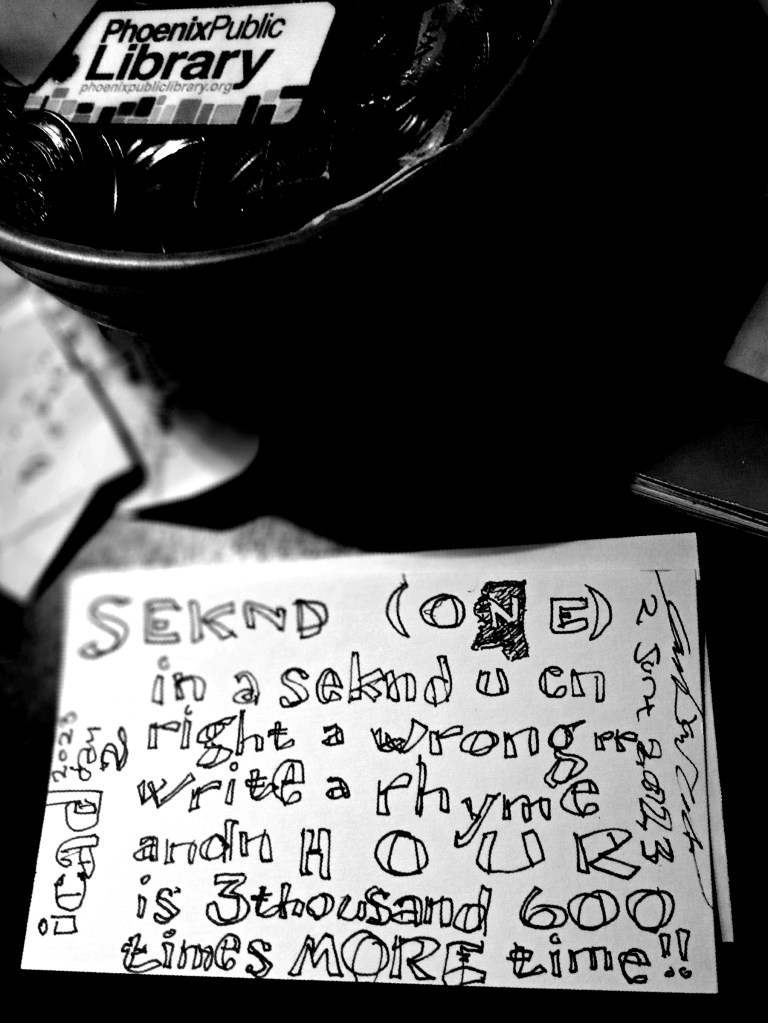 PhoenixPublic
Library
phoenixpubliclibrary.org
SEKND (ONE)
in a seknd u cn
right a wrong rr
write a rhyme
andn HOUR
is 3thousand 600
times MORE time!!
icad 2023
day 2
2 June 2023